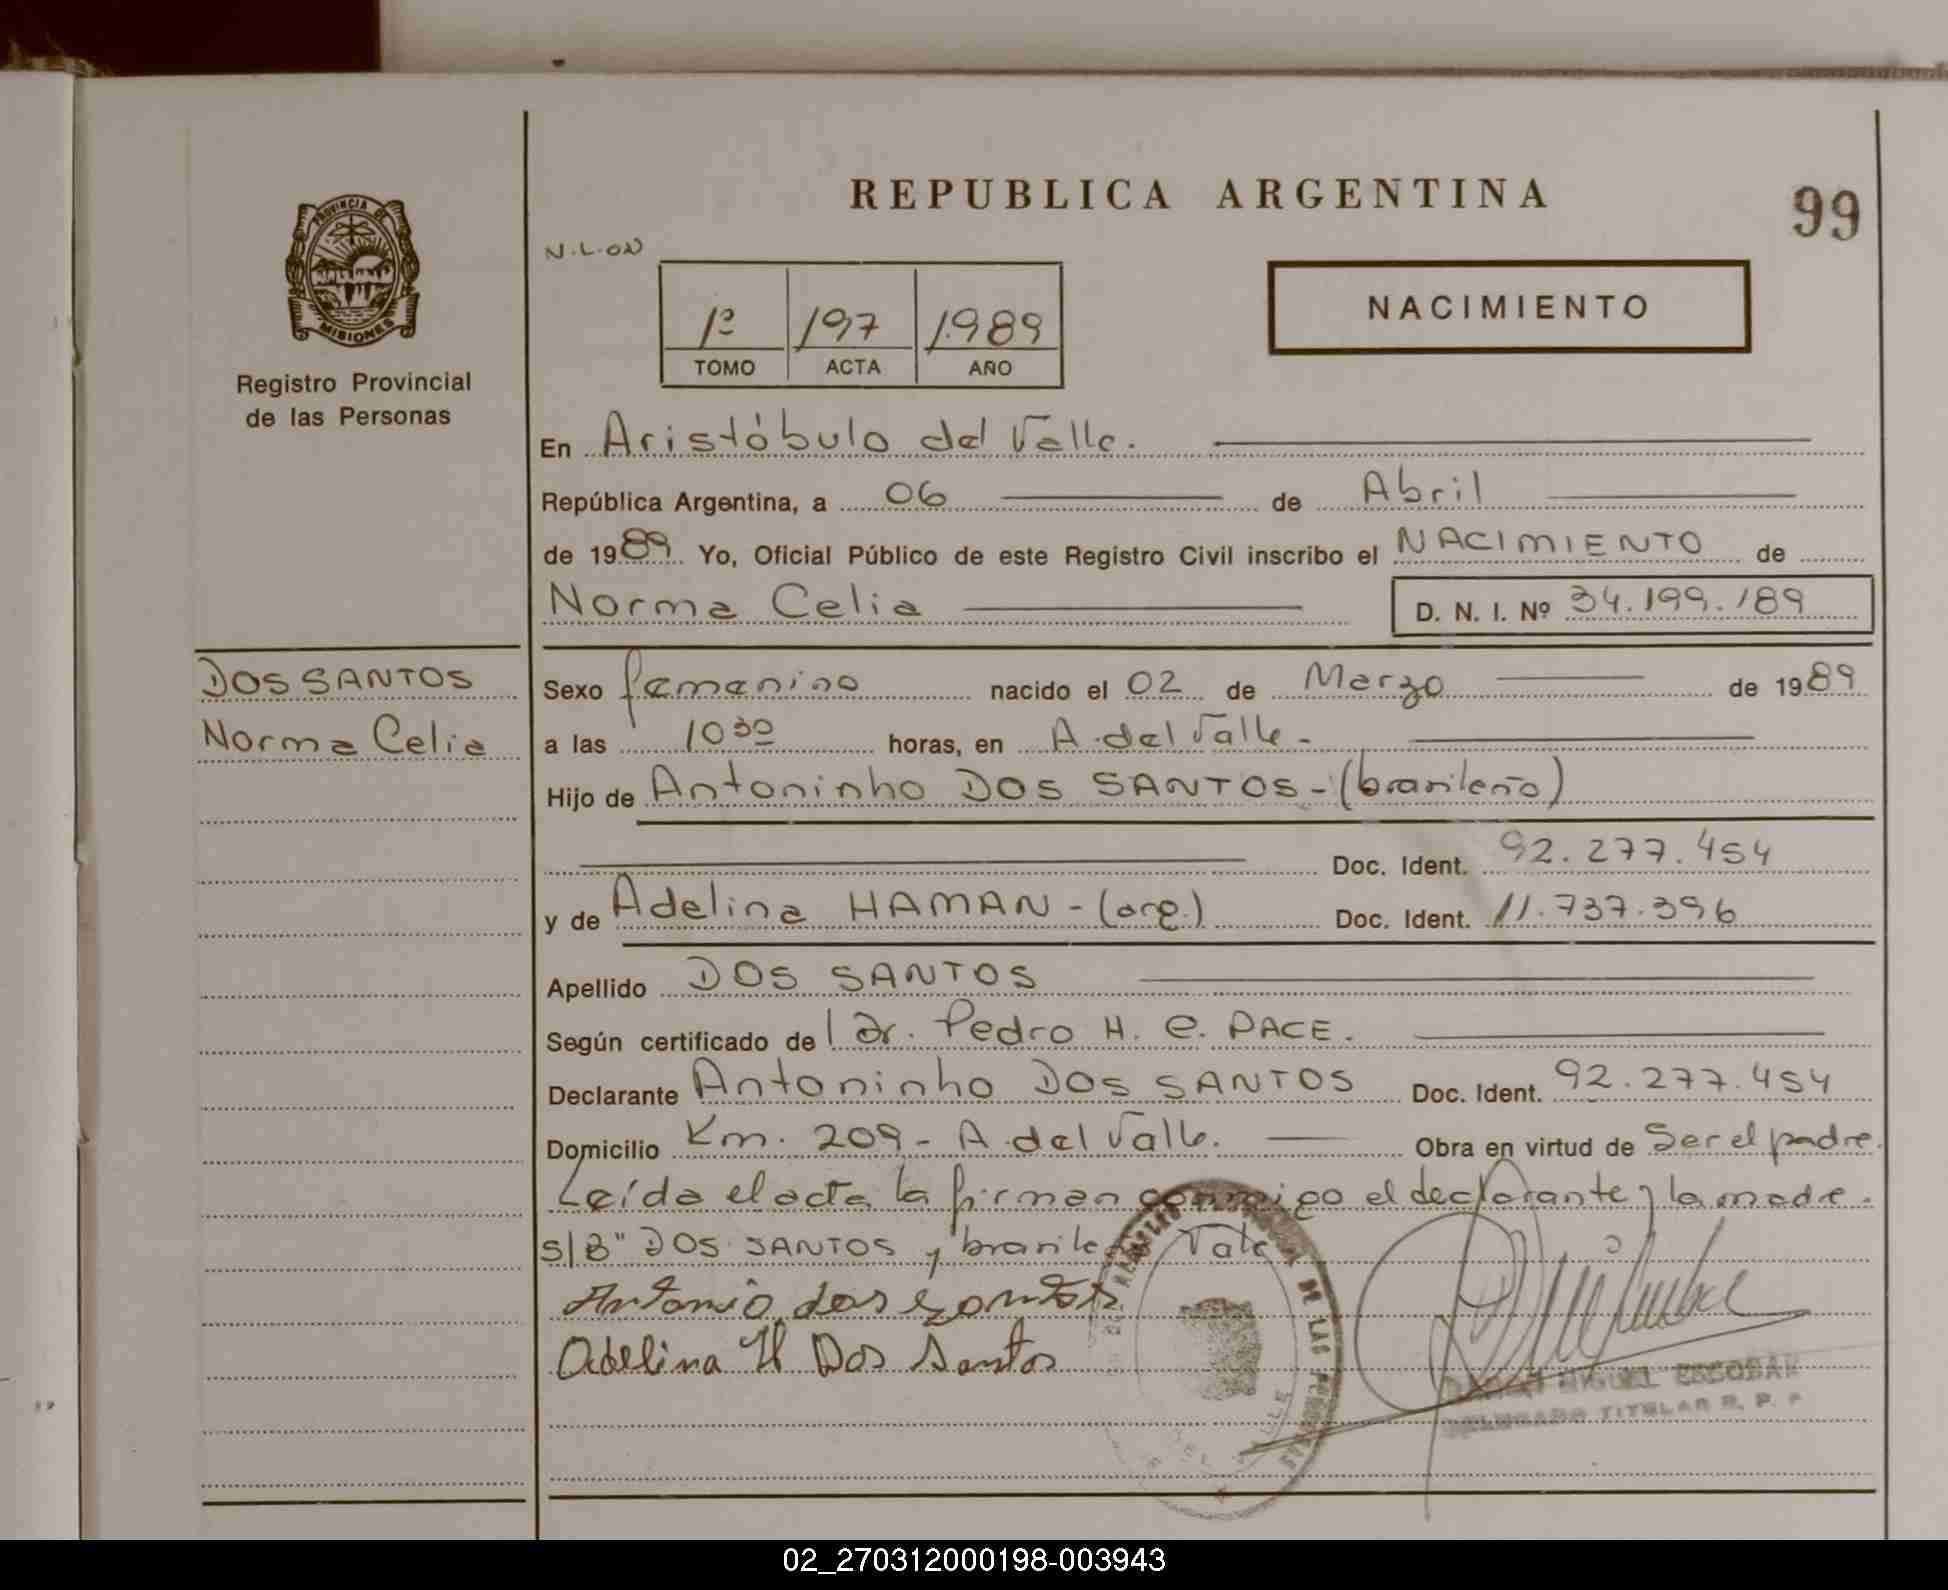 REPUBLICA ARGENTINA
99
PROVINCIA DE
MISIONES
Registro Provincial
de las Personas
N.L.ON
1º 197 1.989
TOMO ACTA AÑO
NACIMIENTO
En Aristóbulo del Valle.
República Argentina, a 06 de Abril
de 1989 Yo, Oficial Público de este Registro Civil inscribo el NACIMIENTO de
Norma Celia D. N. I. Nº 34.199.189
DOS SANTOS
Norma Celia
Sexo femenino nacido el 02 de Marzo de 1989
a las 10 30 horas, en A. del Valle.-
Hijo de Antoninho DOS SANTOS-(brasileño)
Doc. Ident. 92.277.454
y de Adelina HAMAN-(arg.) Doc. Ident. 11.737.396
Apellido DOS SANTOS
Según certificado de l Dr. Pedro H. C. PACE.
Declarante Antoninho DOS SANTOS Doc. Ident. 92.277.454
Domicilio Km. 209- A. del Valle. Obra en virtud de Ser el padre.
Leída el acta la firman conmigo el declarante y la madre.
S/B" DOS SANTOS y brasile Vale
Antonio dos santos
Adelina H Dos Santos
DE LAS PERSONAS
DEL VALLE
MIGUEL ESCOBAR
DELEGADO TITULAR R. P. P
02_270312000198-003943